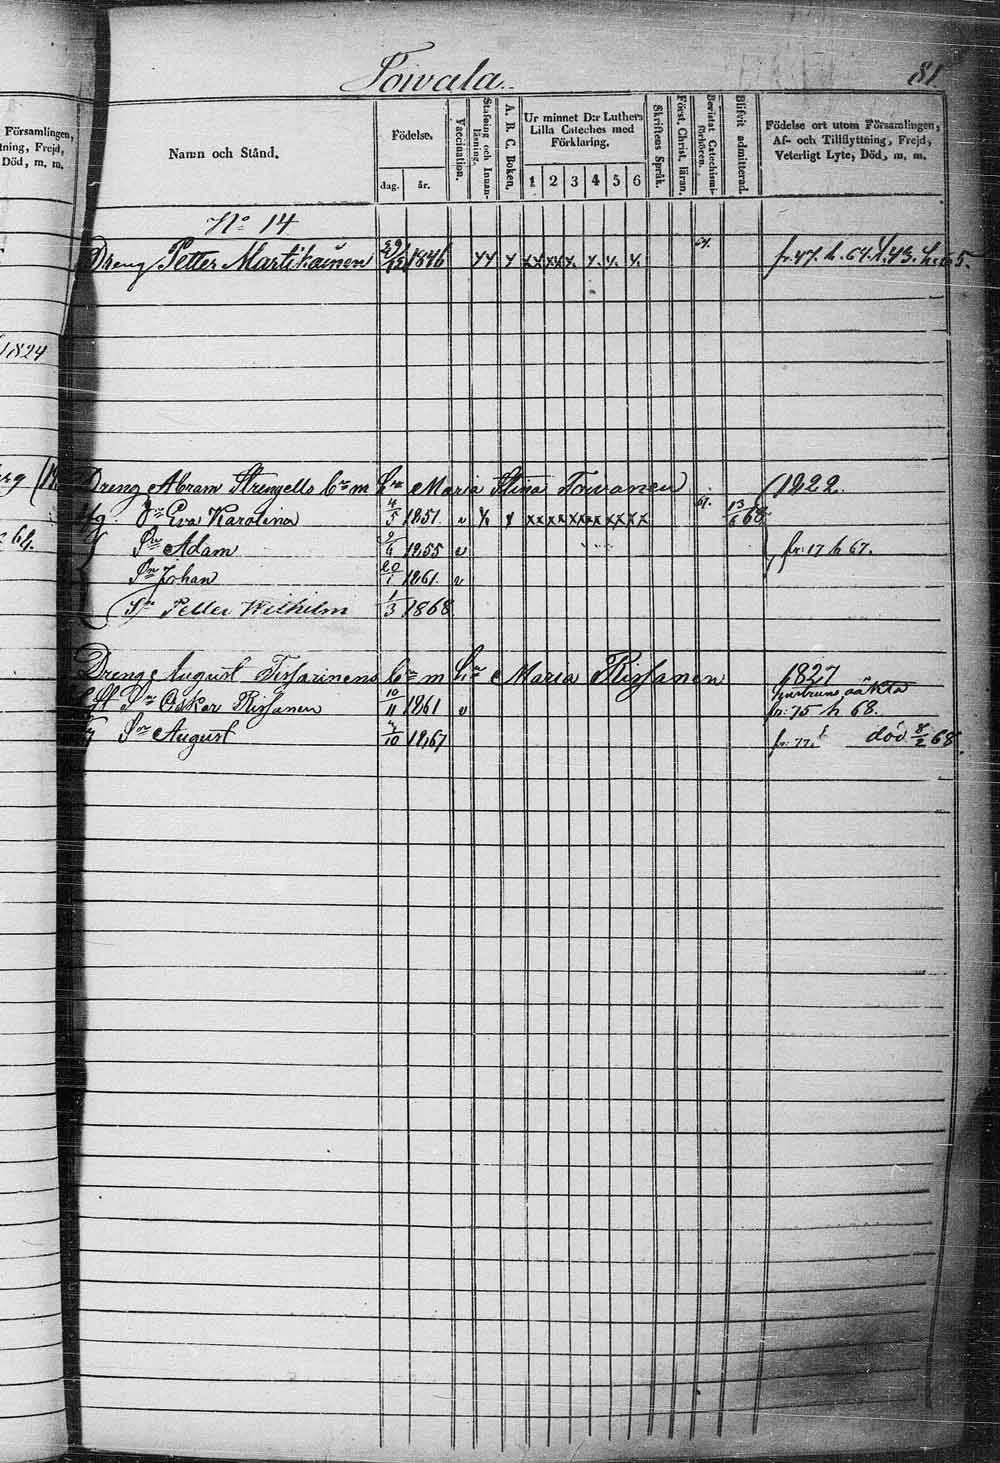 Toivala.
81.
Församlingen,
tning, Frejd,
Död, m. m.
Namn och Stånd.
Födelse.
dag. år.
Vaccination.
Stafning och Innan-läsning.
A. B. C. Boken.
Ur minnet D:r Luthers Lilla Cateches med Förklaring.
1 2 3 4 5 6
Skriftens Språk.
Först. Christ. läran.
Bevistat Catechismi-förhören.
Blifvit admitterad.
Födelse ort utom Församlingen, Af- och Tillflyttning, Frejd, Veterligt Lyte, Död, m. m.
No 14
Dreng Petter Martikainen 1846 fr. 47. h. 64.
1824
Dreng Abram Strengells Enm Lna Maria Stina Toivanen (1822.
Dr Eva Karolina 4/5 1851 v 13/6 68
Sn Adam 2/6 1855 v fr. 17 h 67.
Sn Johan 20/1 1861. v
Sn Petter Wilhelm 1/3 1868
Dreng August Tissarinens Enm Lna Maria Rissanen 1827
Sn Oskar Rissanen 10/11 1861 v oäkta
fr. 75 h 68.
Sn August /10 1867 fr. 77. död 8/2 68.